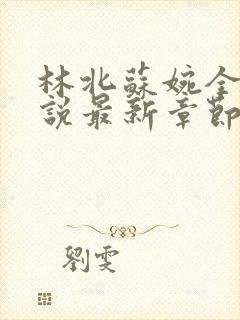 林北蘇婉全
說最新章節
劉雯